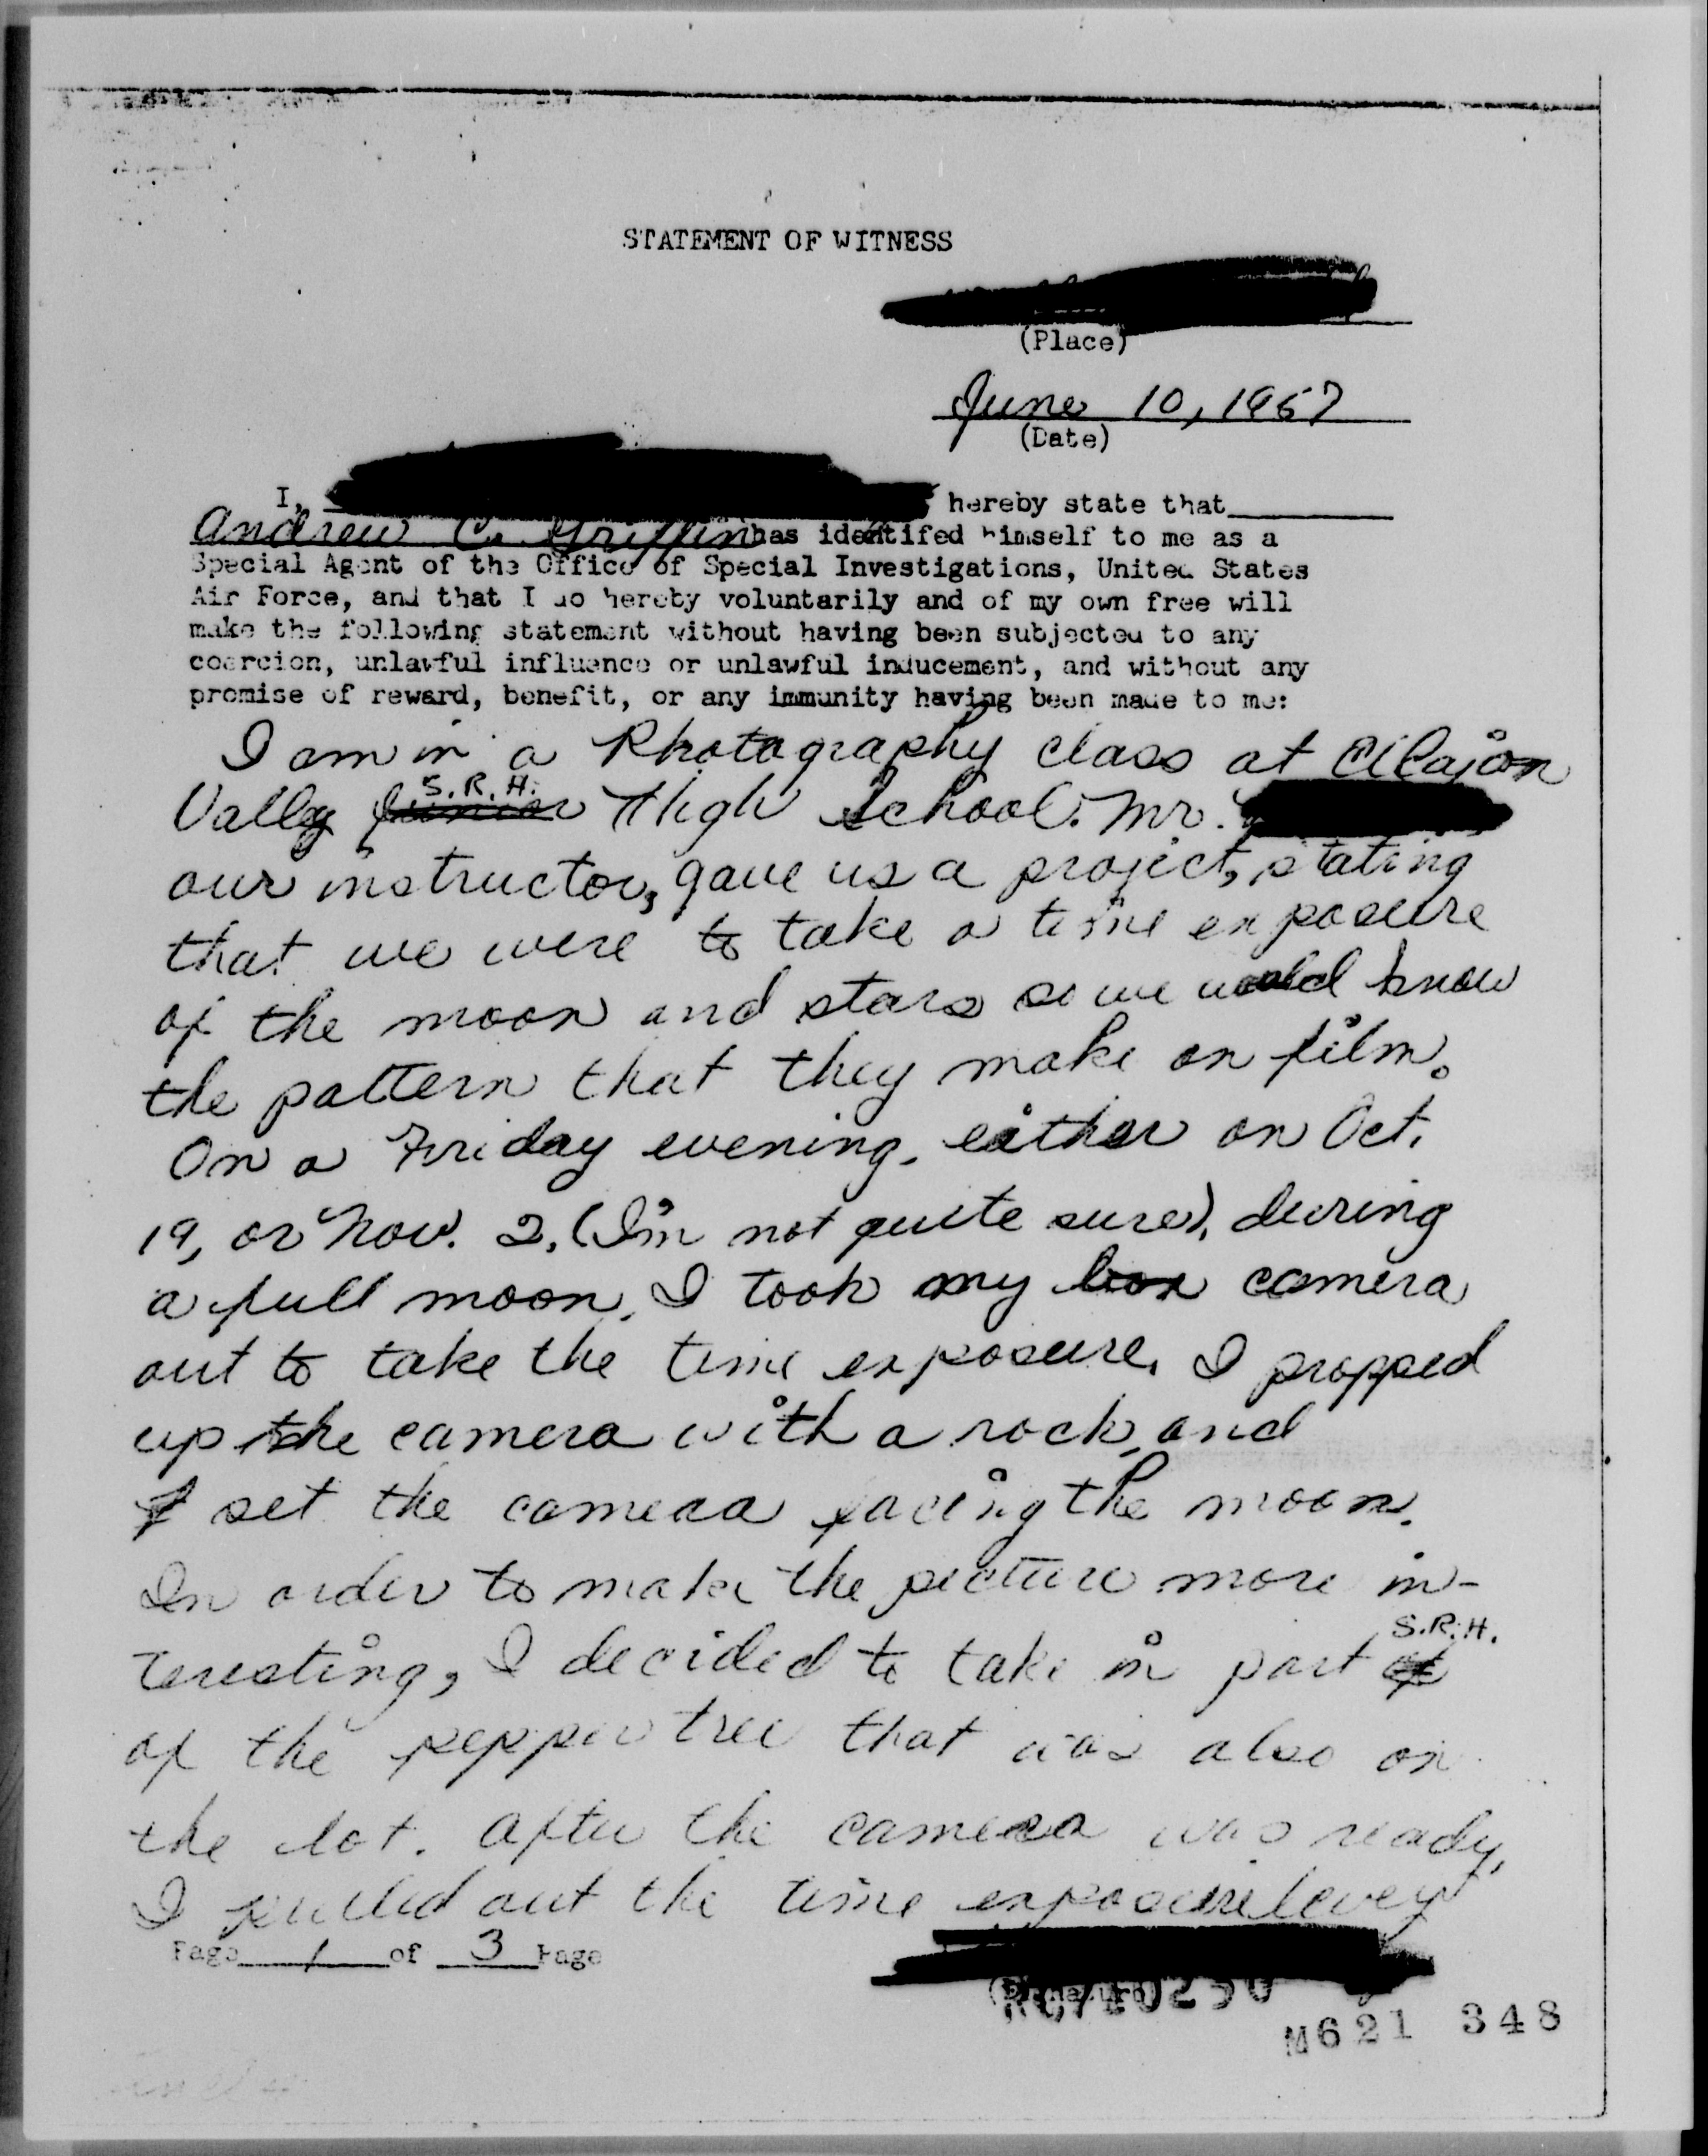 STATEMENT OF WITNESS
(Place)
June 10, 1957
(Date)
I, hereby state that
Andrew C. Griffin has identifed himself to me as a
Special Agent of the Office of Special Investigations, United States
Air Force, and that I do hereby voluntarily and of my own free will
make the following statement without having been subjected to any
coercion, unlawful influence or unlawful inducement, and without any
promise of reward, benefit, or any immunity having been made to me:
I am in a Photography class at El Cajon
S.R.H.
Vally Junior High School. Mr.
our instructor, gave us a project, stating
that we were to take a time exposure
of the moon and stars so we would know
the pattern that they make on film.
On a Friday evening, either on Oct.
19, or Nov. 2, (I'm not quite sure), during
a full moon, I took my box camera
out to take the time exposure. I propped
up the camera with a rock, and
I set the camera facing the moon.
In order to make the picture more in-
S.R.H.
teresting, I decided to take in part of
of the pepper tree that was also on
the lot. After the camera was ready,
I pulled out the time exposure lever
Page 1 of 3 Page
M621 348